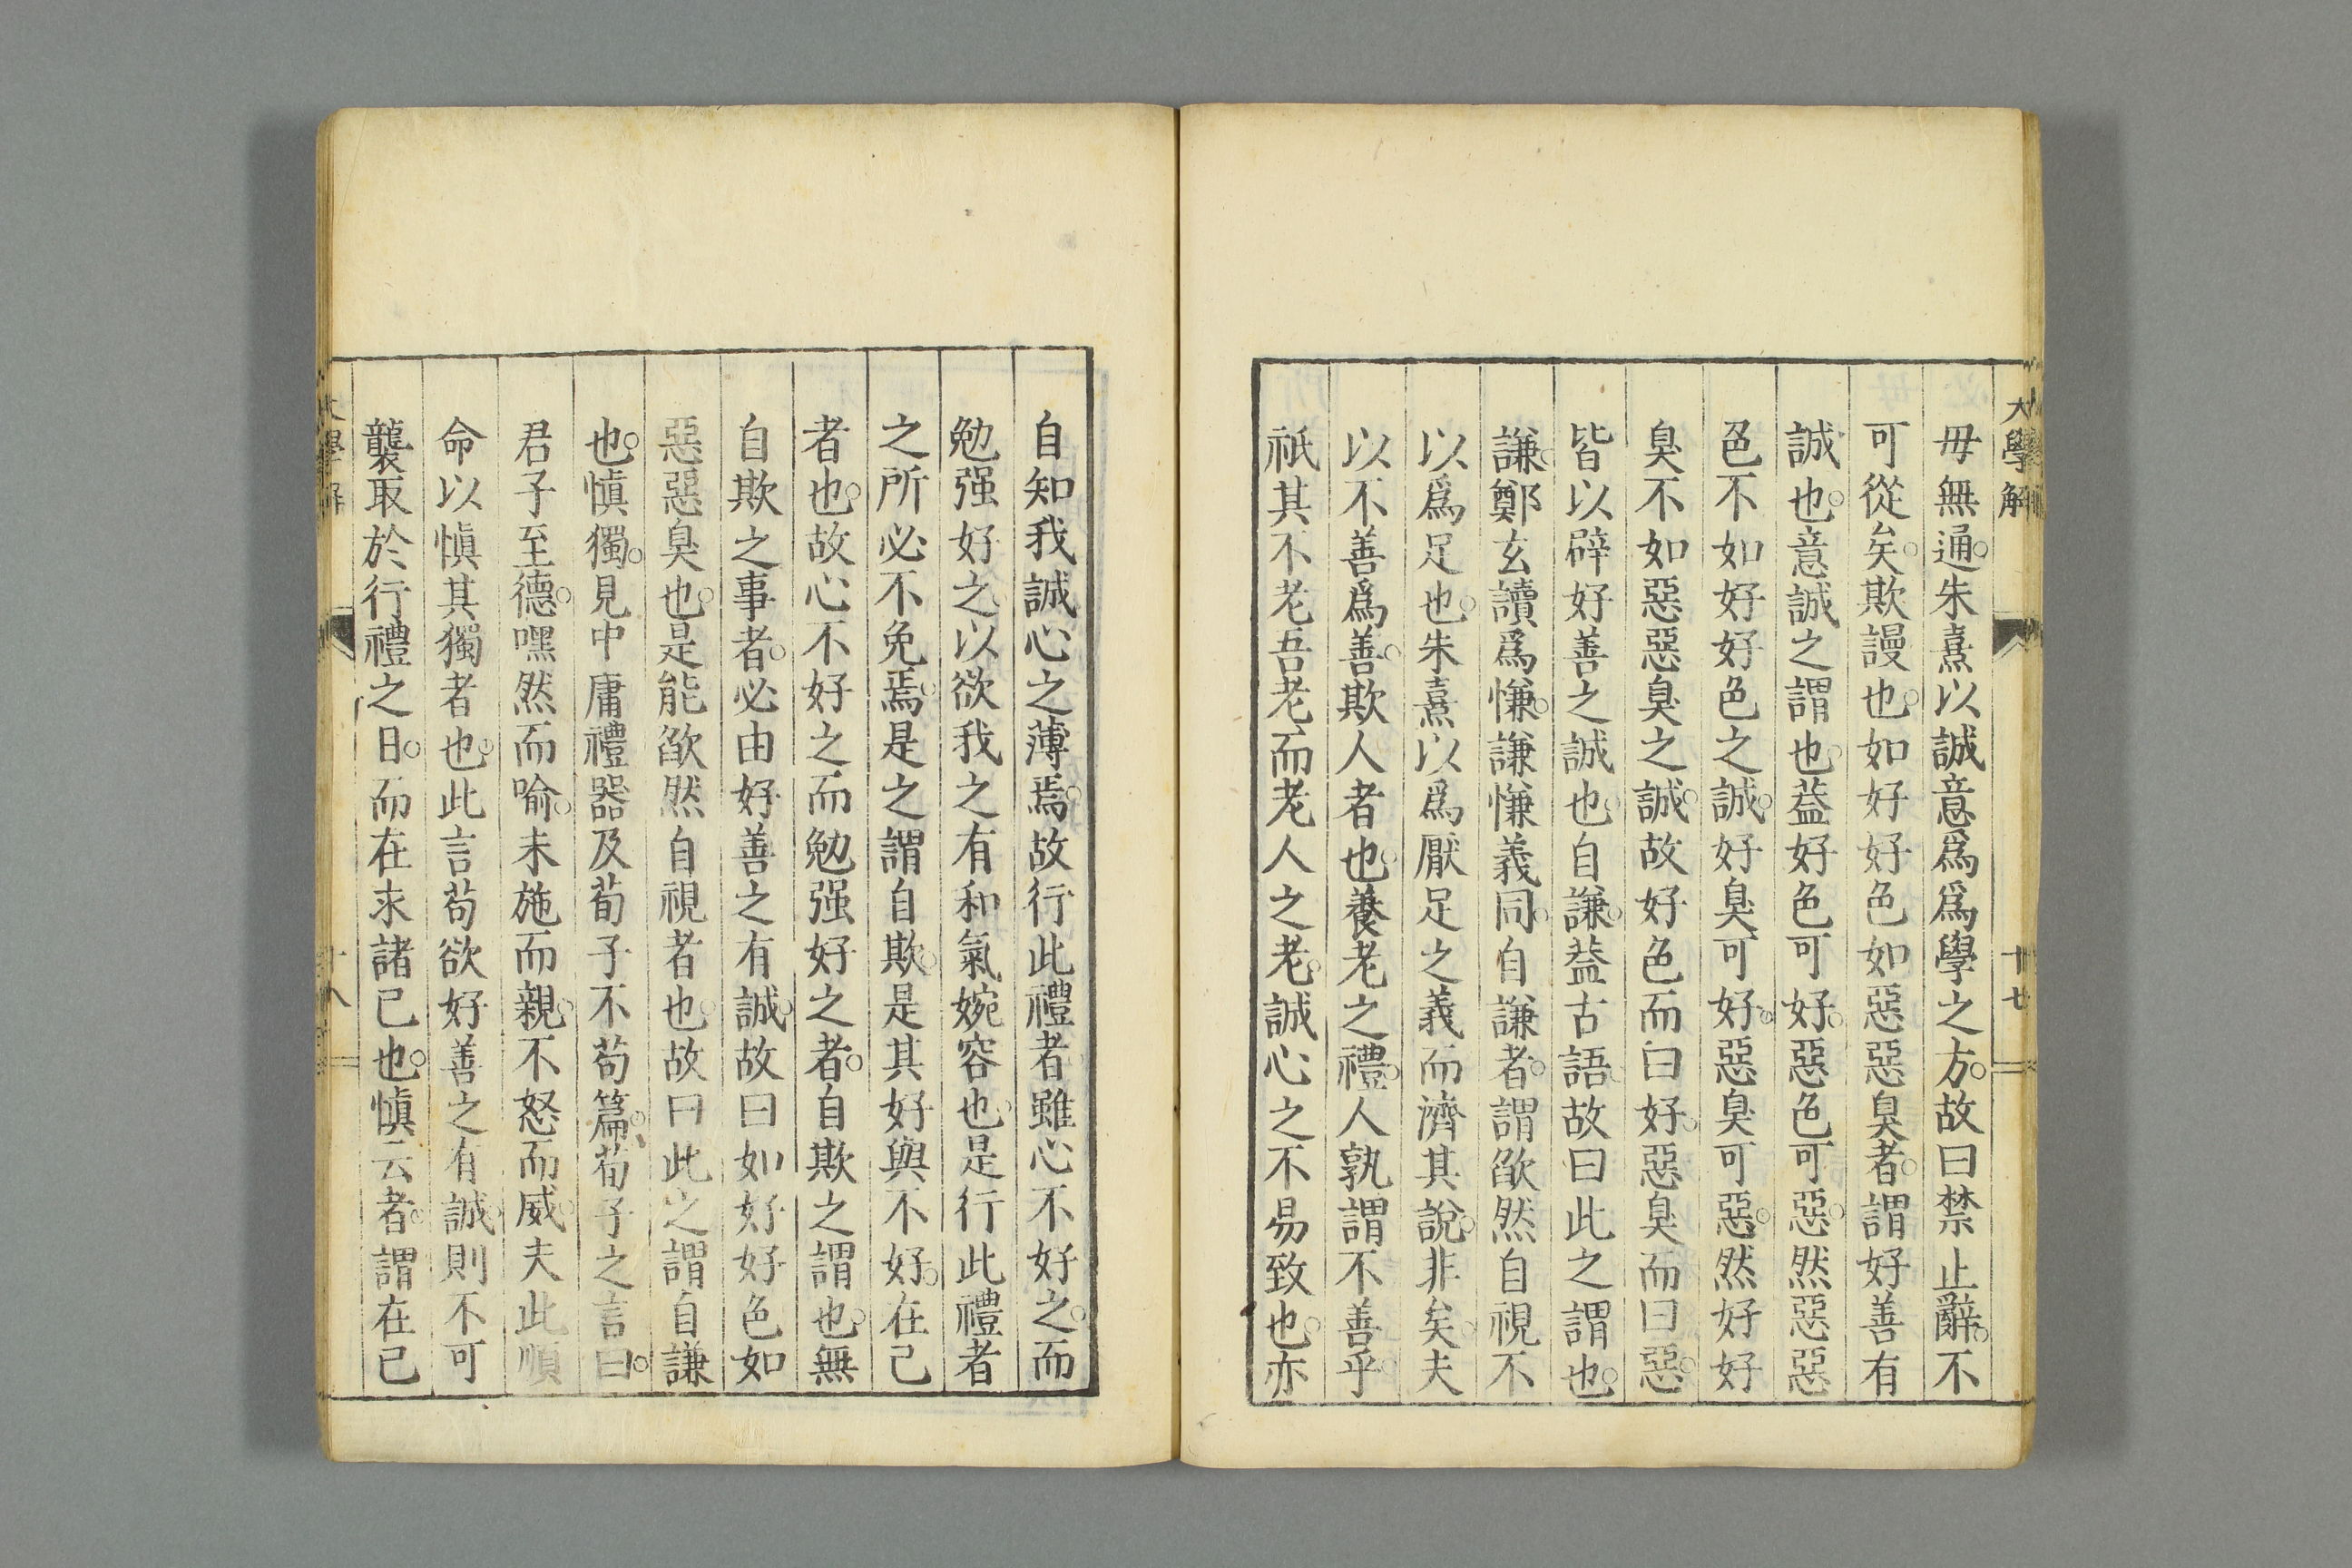 大學解
十七
毋無通。朱熹以誠意爲爲學之方。故曰禁止辭。不
可從矣。欺謾也。如好好色如惡惡臭者。謂好善有
誠也。意誠之謂也。葢好色可好。惡色可惡。然惡惡
色不如好好色之誠。好臭可好。惡臭可惡。然好好
臭不如惡惡臭之誠。故好色而曰好。惡臭而曰惡。
皆以辟好善之誠也。自謙。葢古語。故曰此之謂也。
謙。鄭玄讀爲慊。謙慊義同。自謙者。謂欿然自視不
以爲足也。朱熹以爲厭足之義而濟其說。非矣。夫
以不善爲善。欺人者也。養老之禮。人孰謂不善乎。
祇其不老吾老而老人之老。誠心之不易致也。亦
自知我誠心之薄焉。故行此禮者雖心不好之。而
勉强好之。以欲我之有和氣婉容也。是行此禮者
之所必不免焉。是之謂自欺。是其好與不好。在己
者也。故心不好之而勉强好之者。自欺之謂也。無
自欺之事者。必由好善之有誠。故曰如好好色如
惡惡臭也。是能欿然自視者也。故曰此之謂自謙
也。愼獨。見中庸禮器及荀子不苟篇。荀子之言曰。
君子至德。嘿然而喻。未施而親。不怒而威。夫此順
命以愼其獨者也。此言苟欲好善之有誠。則不可
襲取於行禮之日。而在求諸己也。愼云者。謂在己
大學解
十八